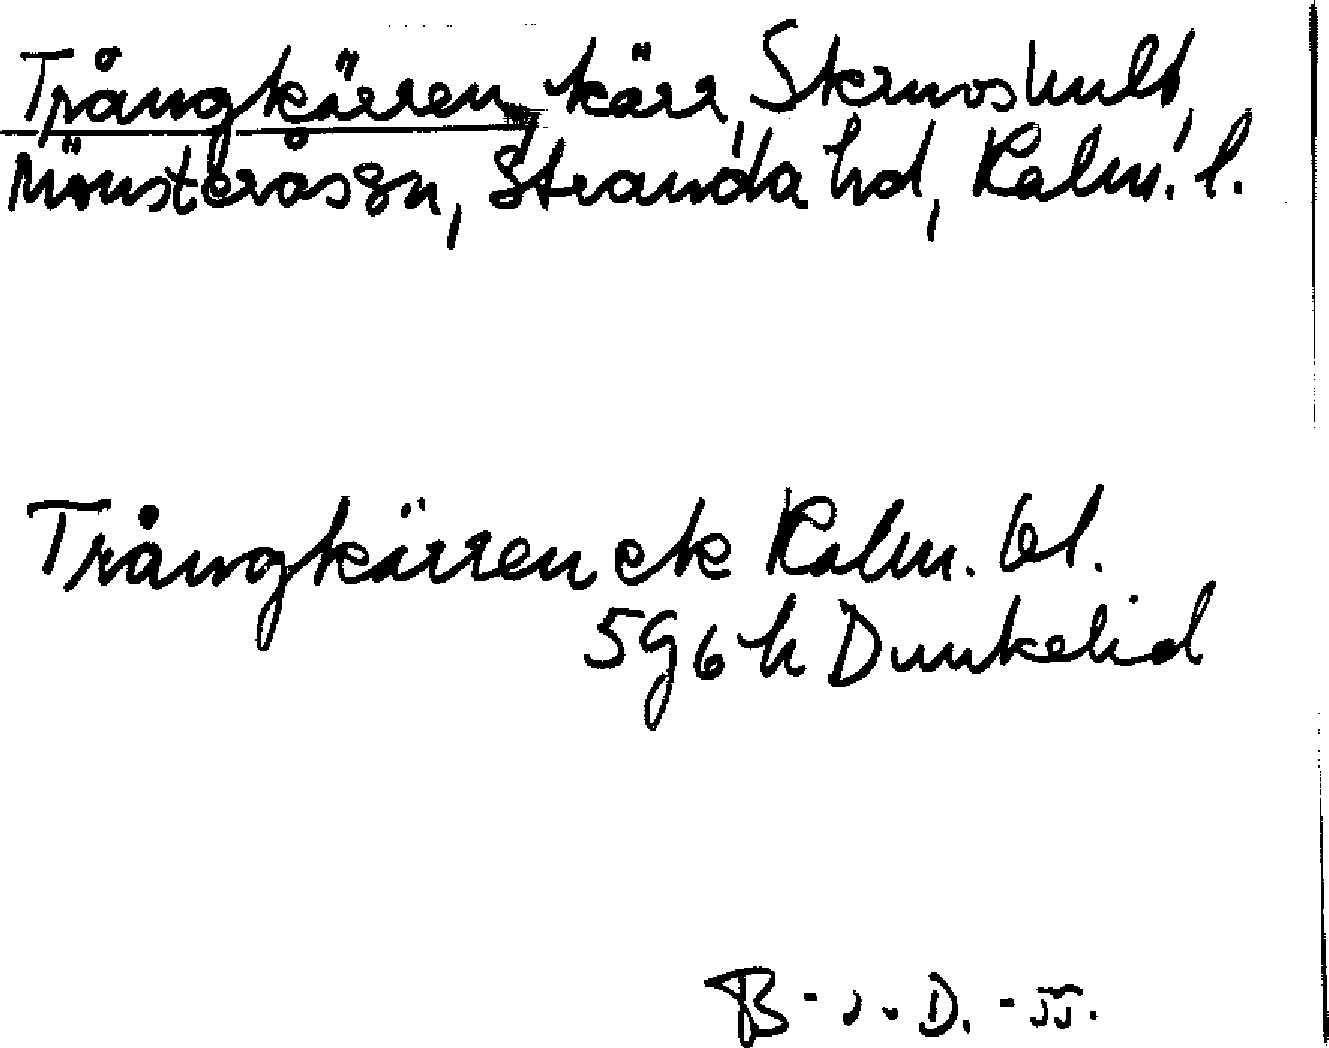 Trångkärren, kärr, Skruvshult,
Mönsterås sn, Stranda hd, Kalm. l.
Trångkärren ek Kalm. bl.
5g6h Dunkelid
B-v.D.-55.